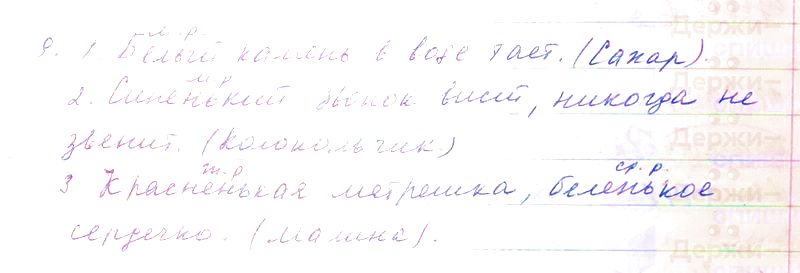 м. р.
9. 1. Белый камень в воде тает. (Сахар).
м. р.
2. Синенький звонок висит, никогда не
звенит. (Колокольчик)
ж. р. ср. р.
3 Красненькая матрешка, беленькое
сердечко. (малина).
Держи-
Держи-
Держи-
Держи-
Держи-